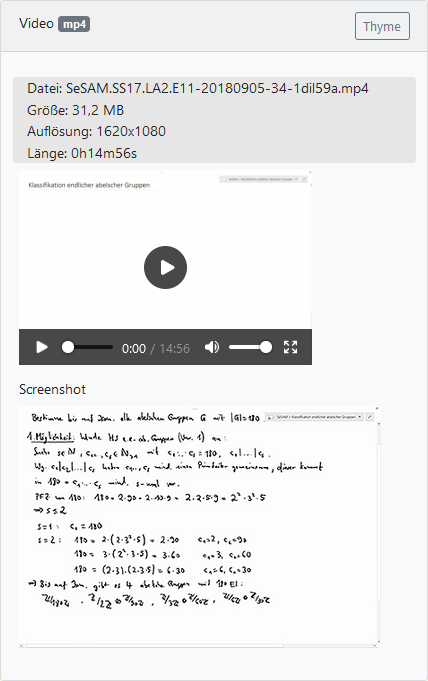 Video mp4
Thyme
Datei: SeSAM.SS17.LA2.E11-20180905-34-1dil59a.mp4
Größe: 31,2 MB
Auflösung: 1620x1080
Länge: 0h14m56s
Klassifikation endlicher abelscher Gruppen
SeSAM • Klassifikation endlicher abelscher Gruppen
0:00 / 14:56
Screenshot
Bestimme bis auf Isom. alle abelschen Gruppen G mit |G|=180
SeSAM • Klassifikation endlicher abelscher Gruppen
1. Möglichkeit: Wende HS e.e. ab. Gruppen (Ver. 1) an:
Suche s∈ℕ, c₁,…,cₛ∈ℕ>₁ mit c₁⋅…⋅cₛ = 180, c₁|…|cₛ.
Wg. c₁|c₂|…|cₛ haben c₁,…,cₛ mind. einen Primteiler gemeinsam, dieser kommt
in 180 = c₁⋅…⋅cₛ mind. s-mal vor.
PFZ von 180: 180 = 2⋅90 = 2⋅10⋅9 = 2⋅2⋅5⋅9 = 2²⋅3²⋅5
⇒ s≤2
s=1: c₁ = 180
s=2: 180 = 2⋅(2⋅3²⋅5) = 2⋅90 c₁=2, c₂=90
180 = 3⋅(2²⋅3⋅5) = 3⋅60 c₁=3, c₂=60
180 = (2⋅3)⋅(2⋅3⋅5) = 6⋅30 c₁=6, c₂=30
⇒ Bis auf Isom. gibt es 4 abelsche Gruppen mit 180 El.:
ℤ/180ℤ, ℤ/2ℤ⊕ℤ/90ℤ, ℤ/3ℤ⊕ℤ/60ℤ, ℤ/6ℤ⊕ℤ/30ℤ